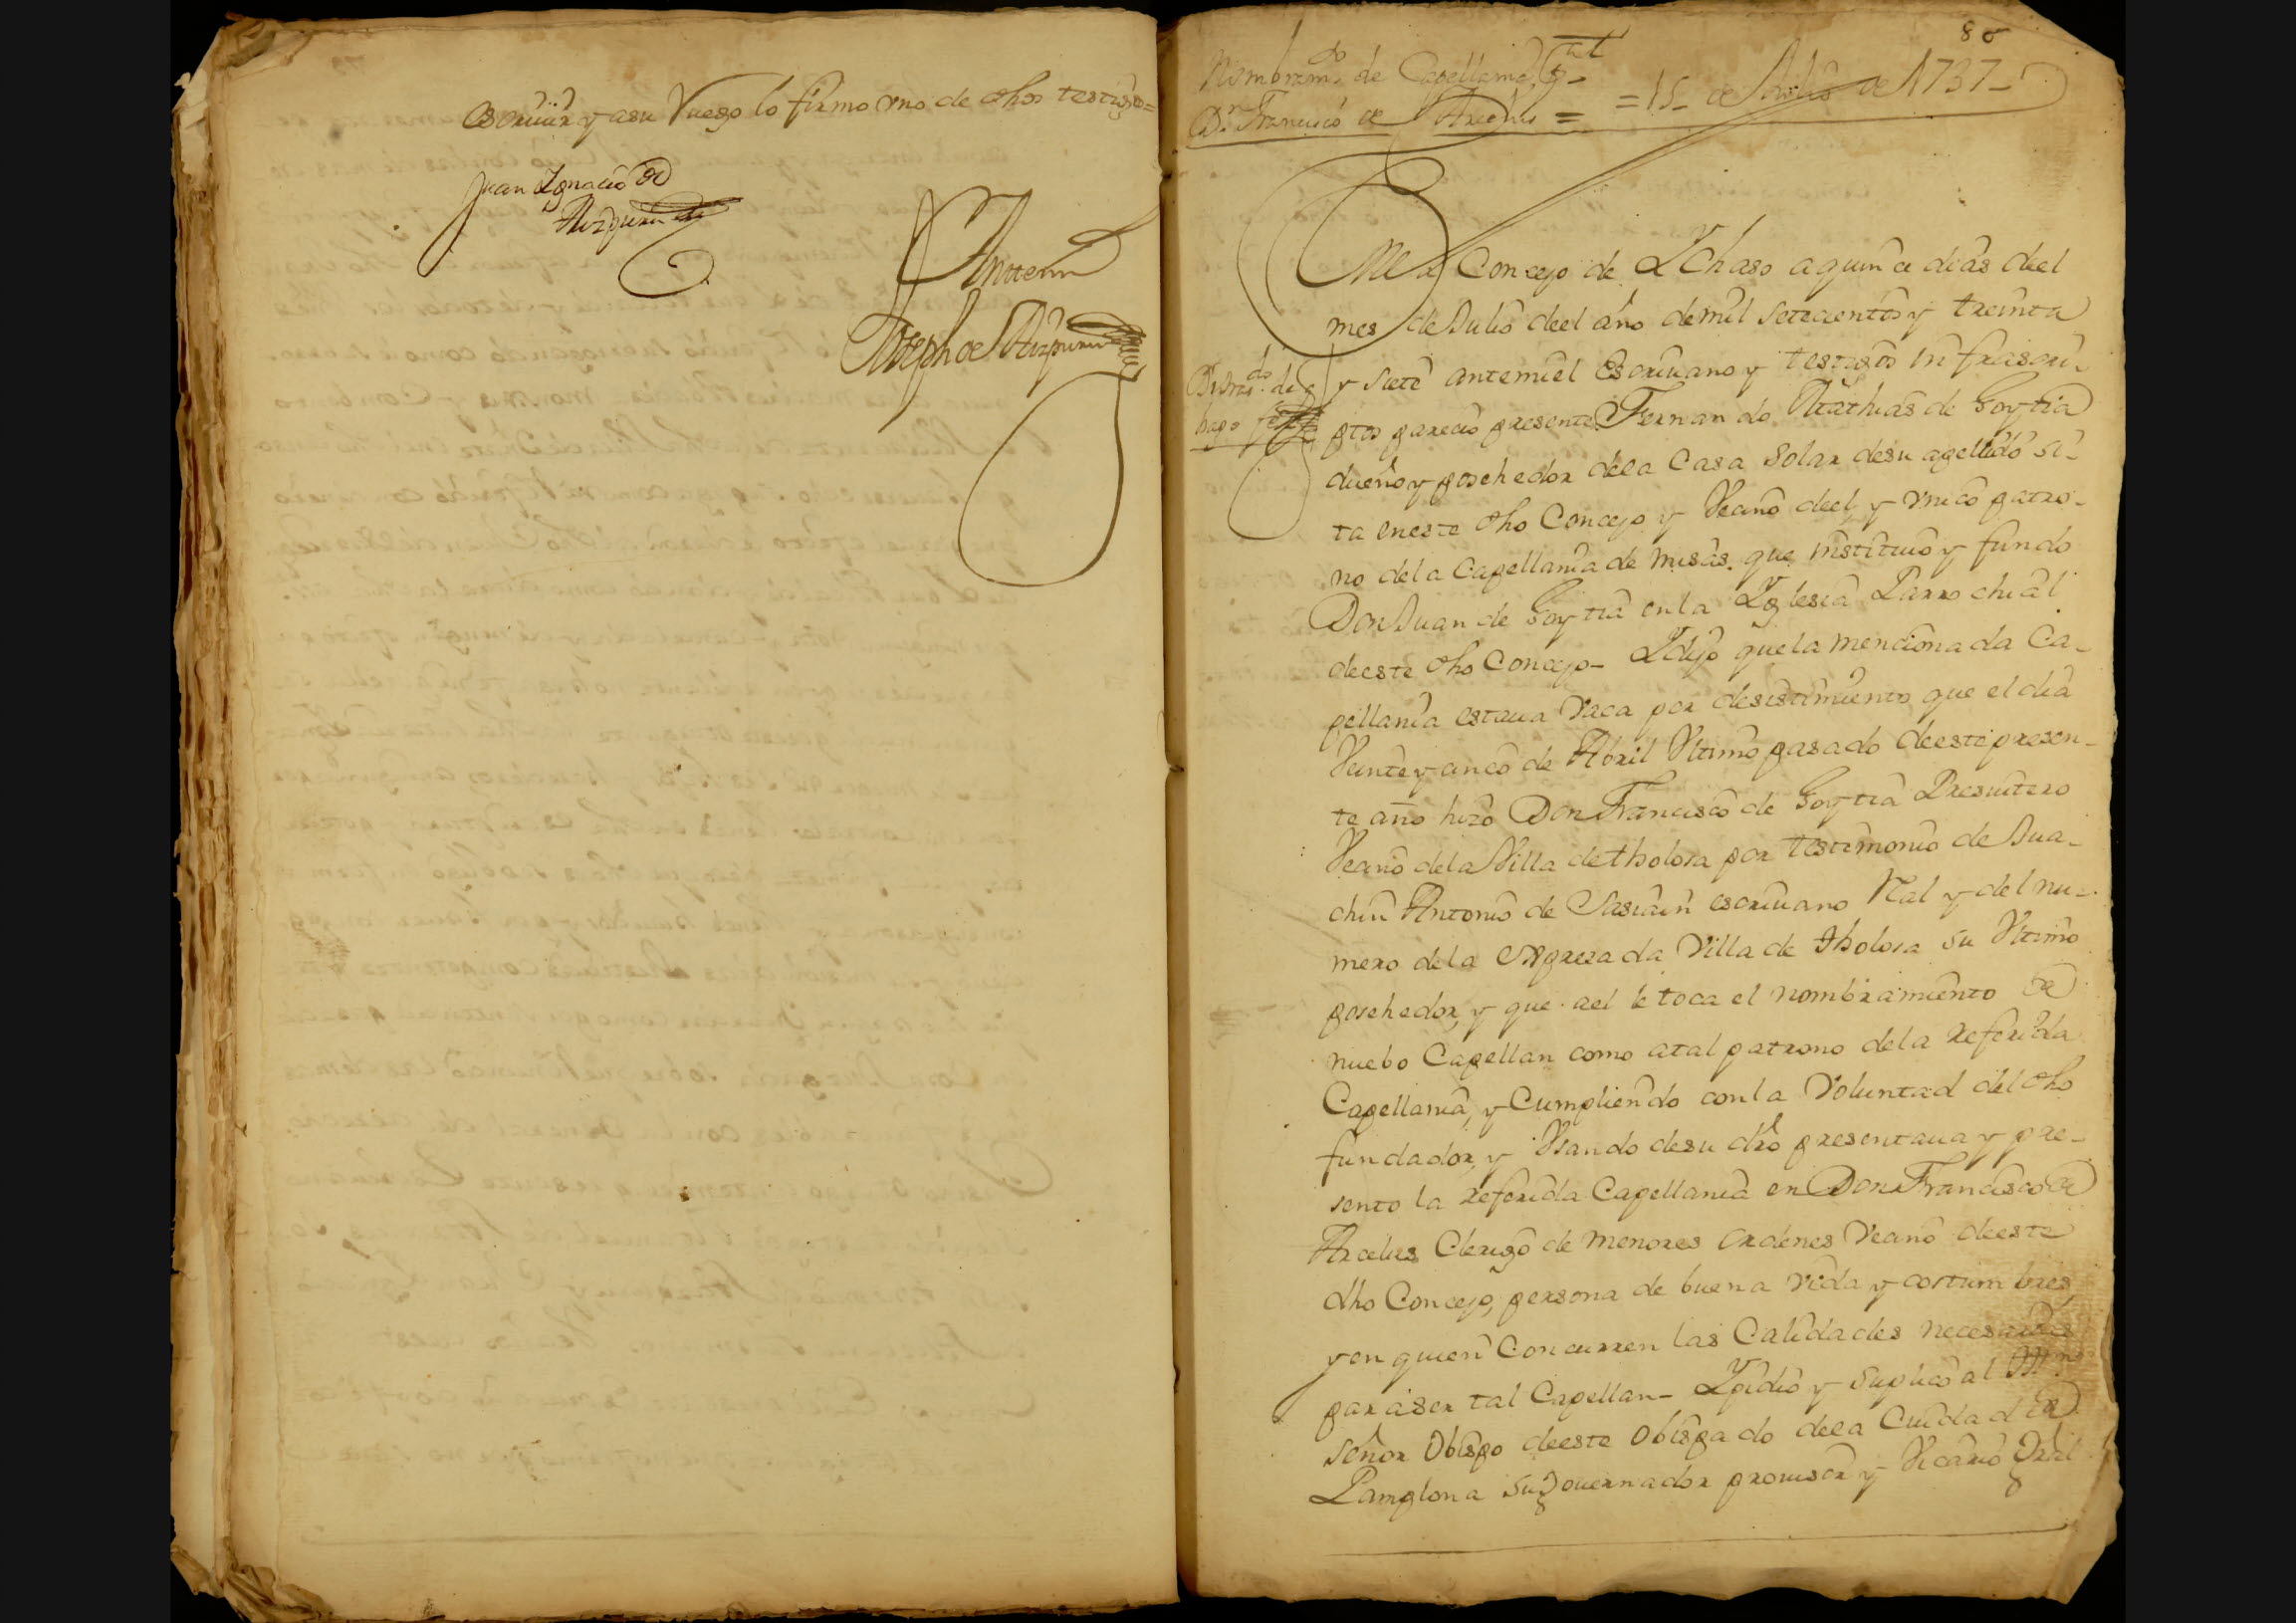 escriuir y a su Ruego lo firmo vno de dhos testigos=
Juan Ygnacio de
Aizpuru
Antemi
Joseph de Aizpuru
80
Nombram.to de Capellania
D.n Francisco de Arcelus =
= 15_ de Julio de 1737_
En el Concejo de Ychaso a quince dias del
mes de Julio deel año de mil setecientos y treinta
y siete ante mi el Escriuano y testigos infrascri-
ptos parecio presente Fernando Mathias de Goytia
dueño y posehedor de la Casa solar de su apellido si-
ta en este dho Concejo y Vecino deel, y vnico patro-
no de la Capellania de misas que instituio y fundo
Don Juan de Goytia en la Yglesia Parrochial
de este dho Concejo_ Y dijo que la mencionada Ca-
pellania estaua Vaca por desistimiento que el dia
Veinte y cinco de Abril Vltimo pasado de este presen-
te año hizo Don Francisco de Goytia Presuitero
Vecino de la Villa de tholosa por testimonio de Jua-
chin Antonio de Sasiain escriuano Ral y del nu-
mero de la expresada Villa de tholosa su Vltimo
posehedor, y que a el le toca el nombramiento de
nuebo Capellan como a tal patrono de la referida
Capellania, y Cumpliendo con la Voluntad del dho
fundador, y Vsando de su dro presentaua y pre-
sento la referida Capellania en Don Francisco de
Arcelus Clerigo de menores ordenes Vecino de este
dho Concejo, persona de buena vida y costumbres,
y en quien Concurren las Calidades necesarias
para ser tal Capellan_ Y pidio y suplico al Ill.mo
señor Obispo de este Obispado de la Ciudad de
Pamplona su Gouernador prouisor y Vicario Gral